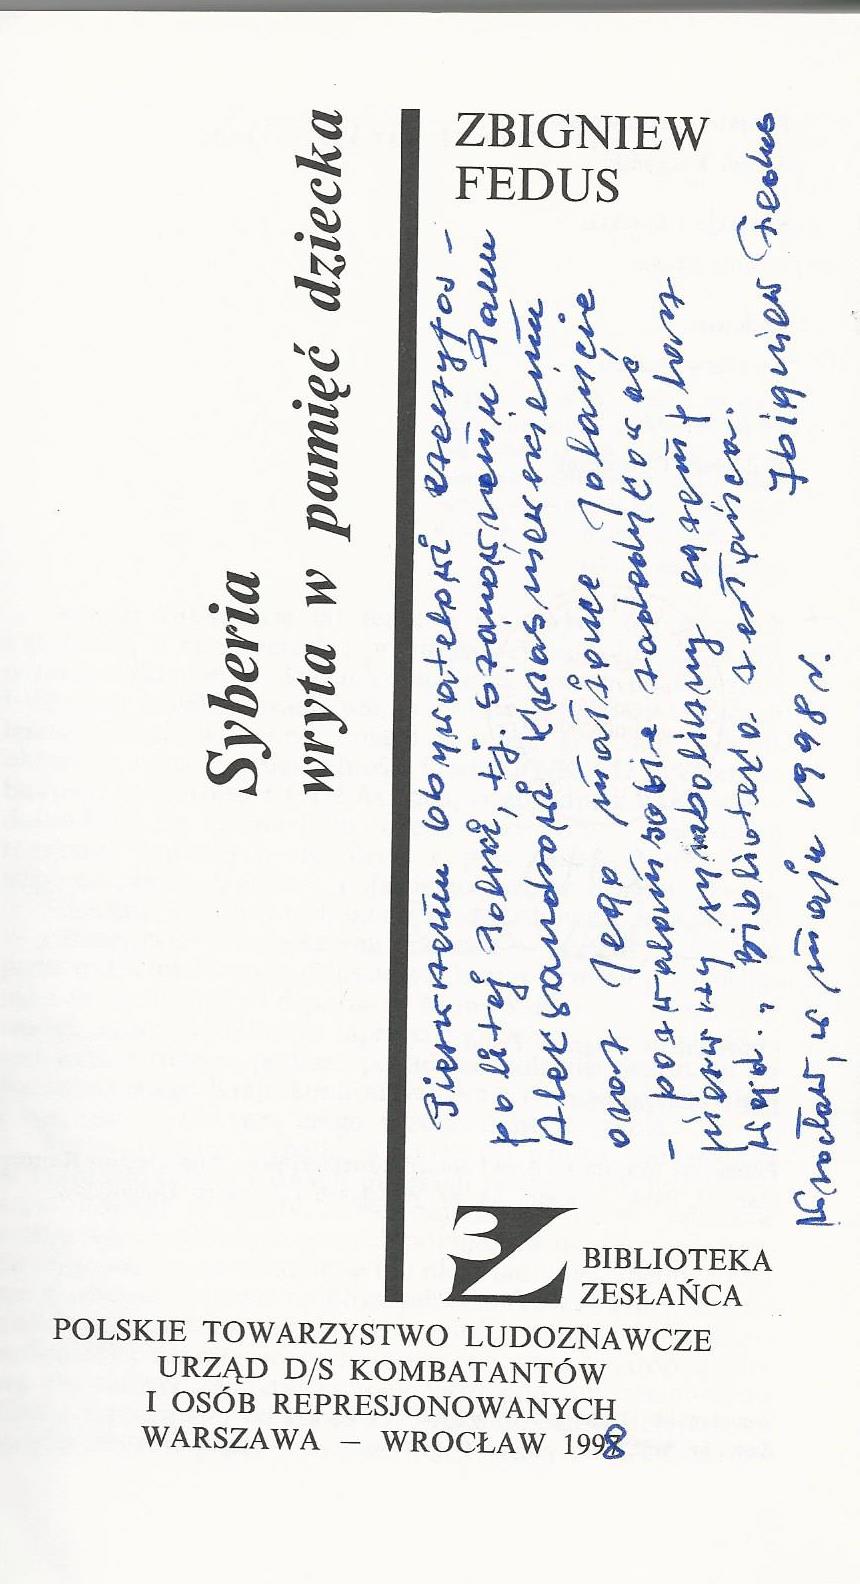 ZBIGNIEW
FEDUS
Syberia
wryta w pamięć dziecka
Pierwszemu obywatelowi Rzeczypos-
politej Polski, tj. Szanownemu Panu
Aleksandrowi Kwaśniewskiemu
oraz Jego małżonce Jolancie
– pozwalam sobie zadedykować
pierwszy symboliczny egzemplarz
wyd. „Biblioteka zesłańca.
Zbigniew Fedus
Wrocław, w maju 1998 r.
BIBLIOTEKA
ZESŁAŃCA
POLSKIE TOWARZYSTWO LUDOZNAWCZE
URZĄD D/S KOMBATANTÓW
I OSÓB REPRESJONOWANYCH
WARSZAWA – WROCŁAW 1998